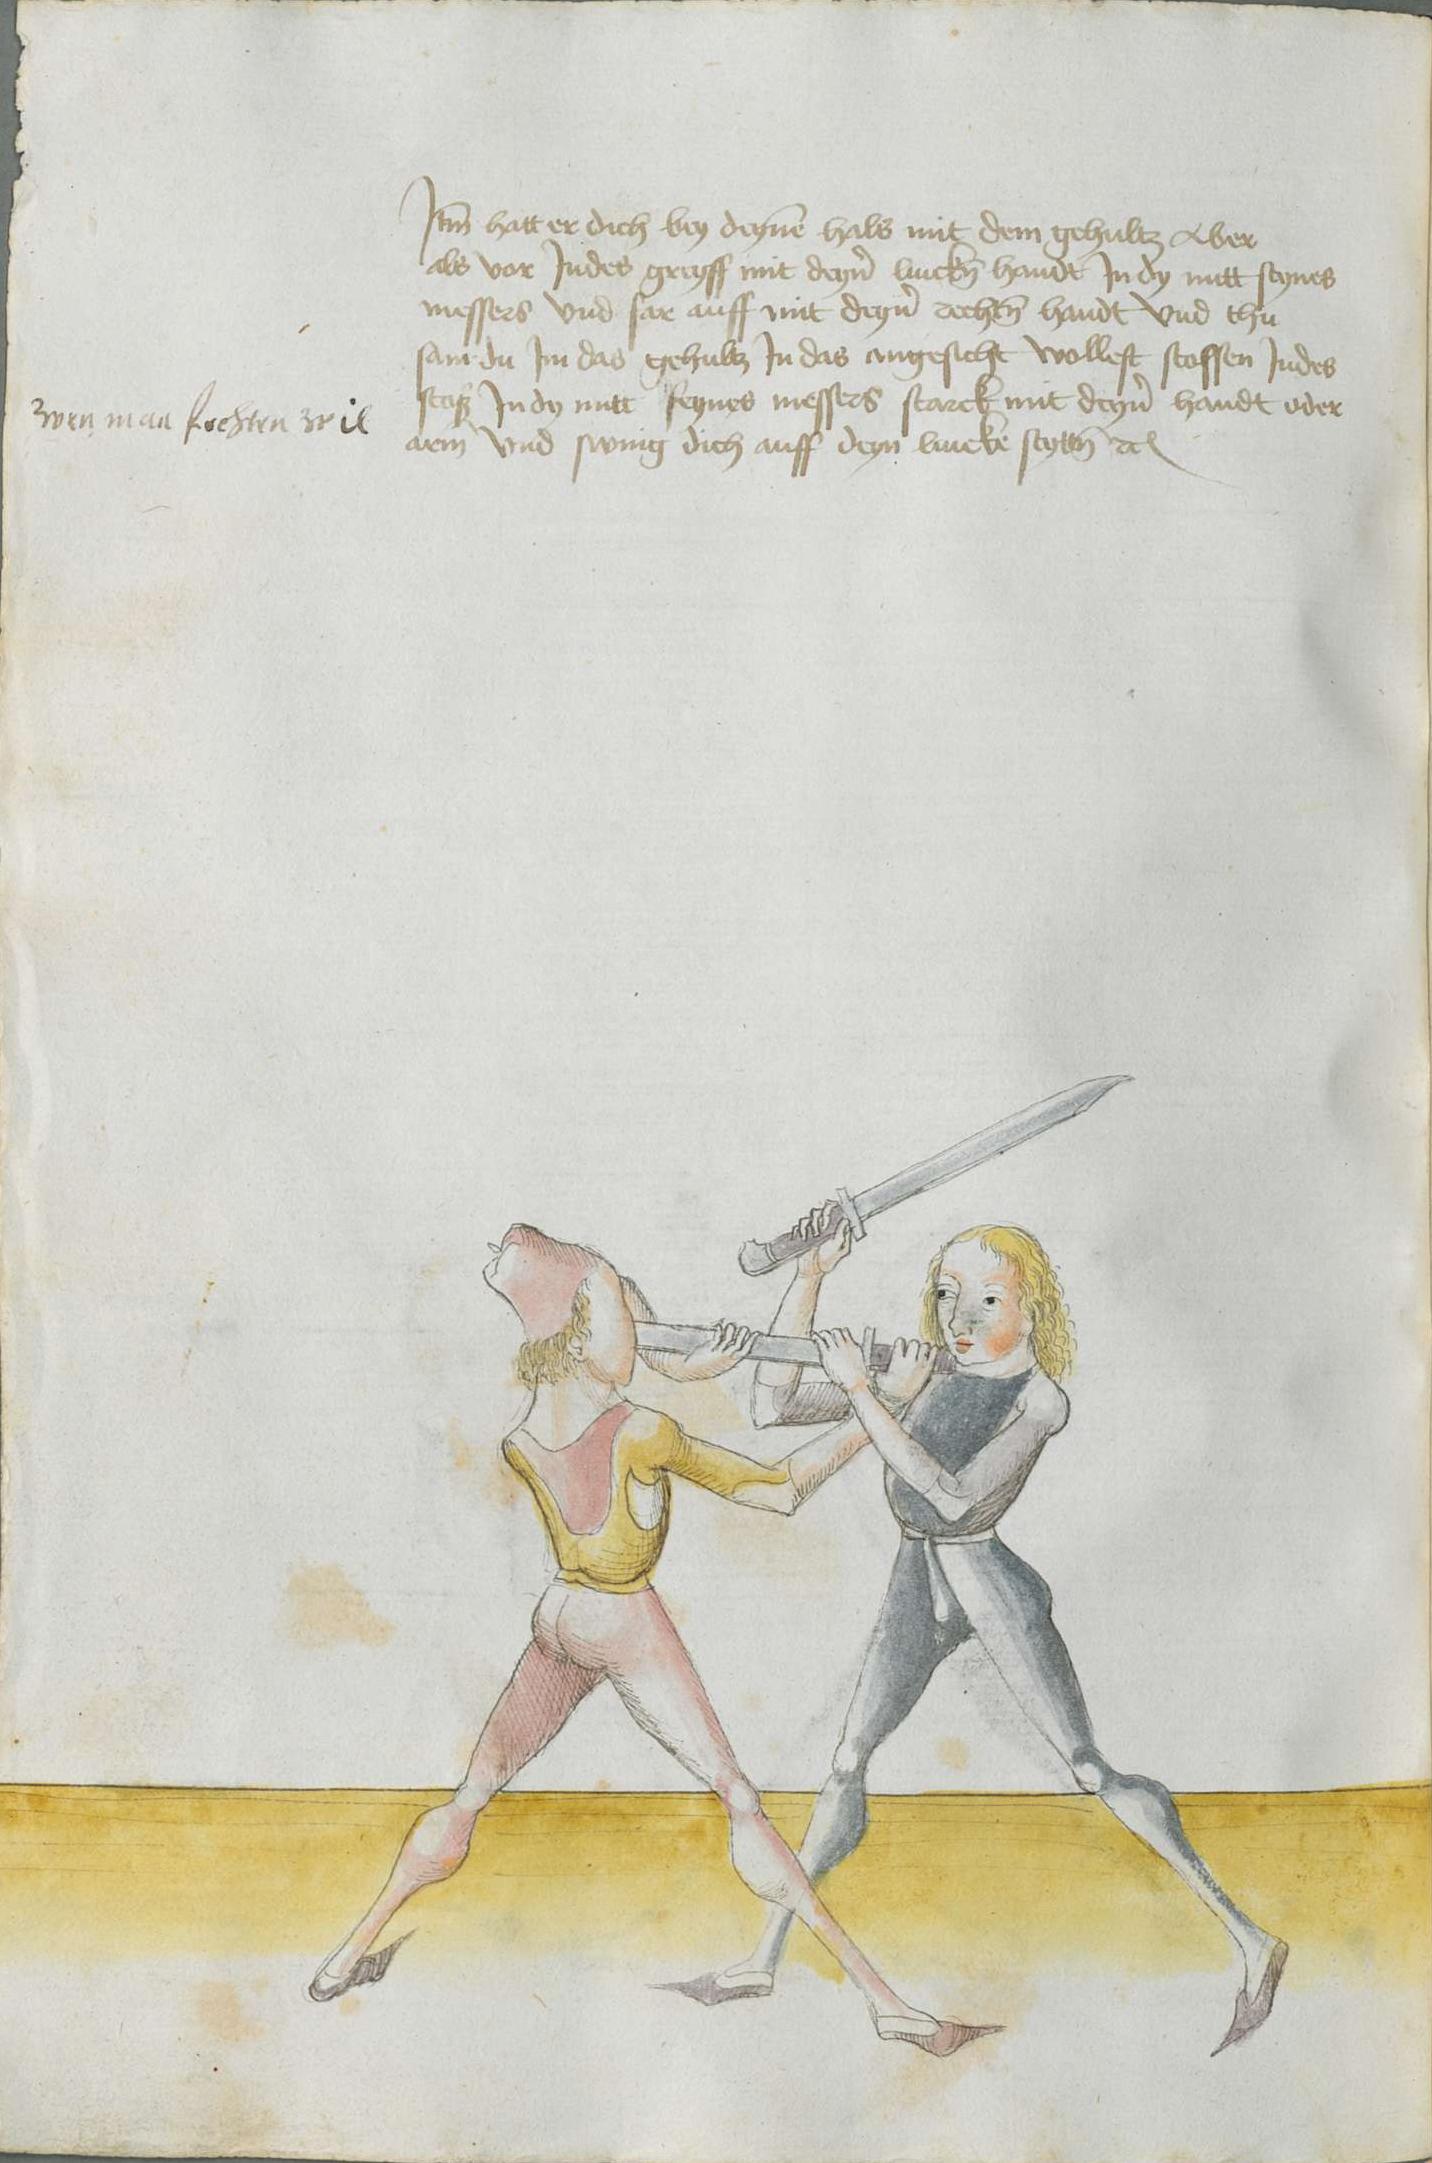 Itm̄ hatt er dich bey deynē hals mit dem gehultz Aber
als vor Indes greyff mit deyn̄ lincken̄ handt In dy mitt seynes
messers vnd far auff mit deyn̄ rechtn̄ handt vnd thu
sam du Im das gehultz In das angesicht wollest stossen Indes
stoß In dy mitt seynes messers starck mit deyn̄ handt oder
zwen man fechten wil
arm vnd swing dich auff deyn lincke seyttn̄ rc